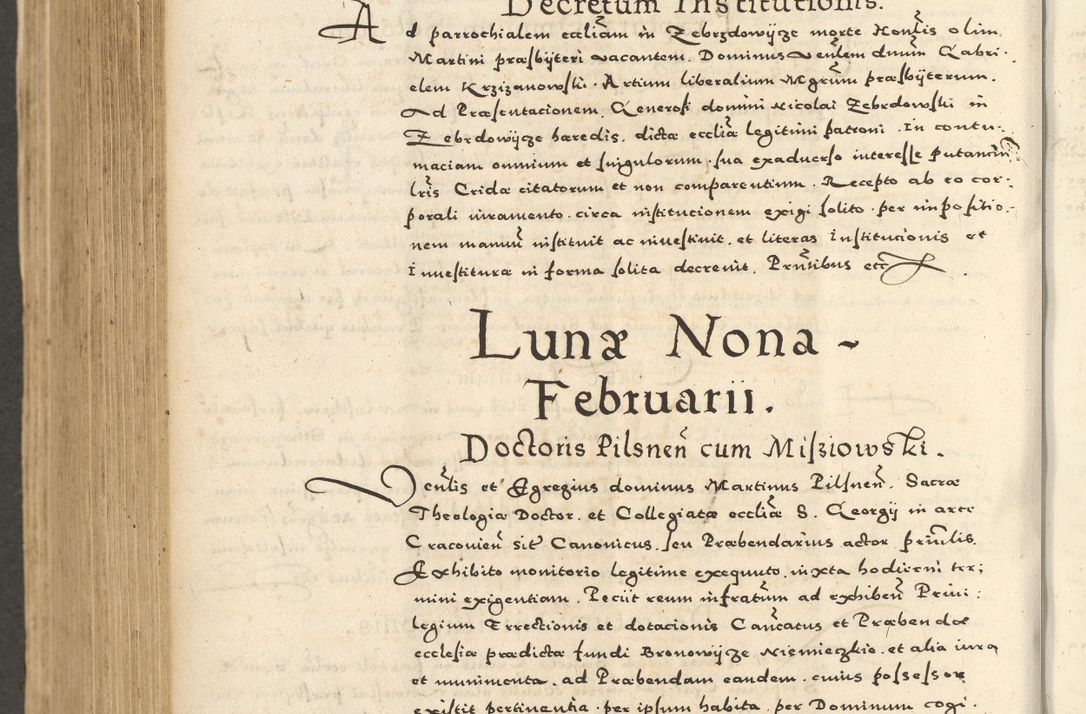 Decretum Institutionis.
Ad parrochialem eccliam in Zebrzdowijcze morte Honlis olim
Martini præsbÿteri vacantem. Dominus venlem dnum Gabri-
elem Krzizanowski. Artium liberalium Mgrum præsbÿterum.
Ad Præsentacionem, Generosi domini Nicolai Zebrdowski in
Zebrdowÿcze hæredis. dictæ eccliæ legitimi patroni. In contu-
maciam omnium et singulorum. sua exaduerso interesse putancium
lris Cridæ citatorum et non comparentium. Recepto ab eo cor-
porali iuramento. circa institucionem exigi solito. per impositio-
nem manuu instituit ac inuestiuit. et literas Institucionis et
Inuestituræ in forma solita decreuit. Prntibus etc
Lunæ Nona ~
Februarii.
Doctoris Pilsnen cum Misziowski.
Venlis et Egregius dominus Martinus Pilsnen. Sacræ
Theologiæ Doctor. et Collegiatæ eccliæ S. Georgÿ in arce
Cracouien sit Canonicus. seu Præbendarius actor princlis.
Exhibito monitorio legitime exequuto. iuxta hodierni ter-
mini exigentiam. Peciit reum infratum ad exhiben Priui-
legium Errectionis et dotacionis Canctatus et Præbendæ
ecclesiæ prædictæ fundi Bronowÿcze Niemieczkie. et alia iura
et munimenta. ad Præbendam eandem. cuius possessor
existit pertinentia. per ipsum habita. per Dominum cogi.